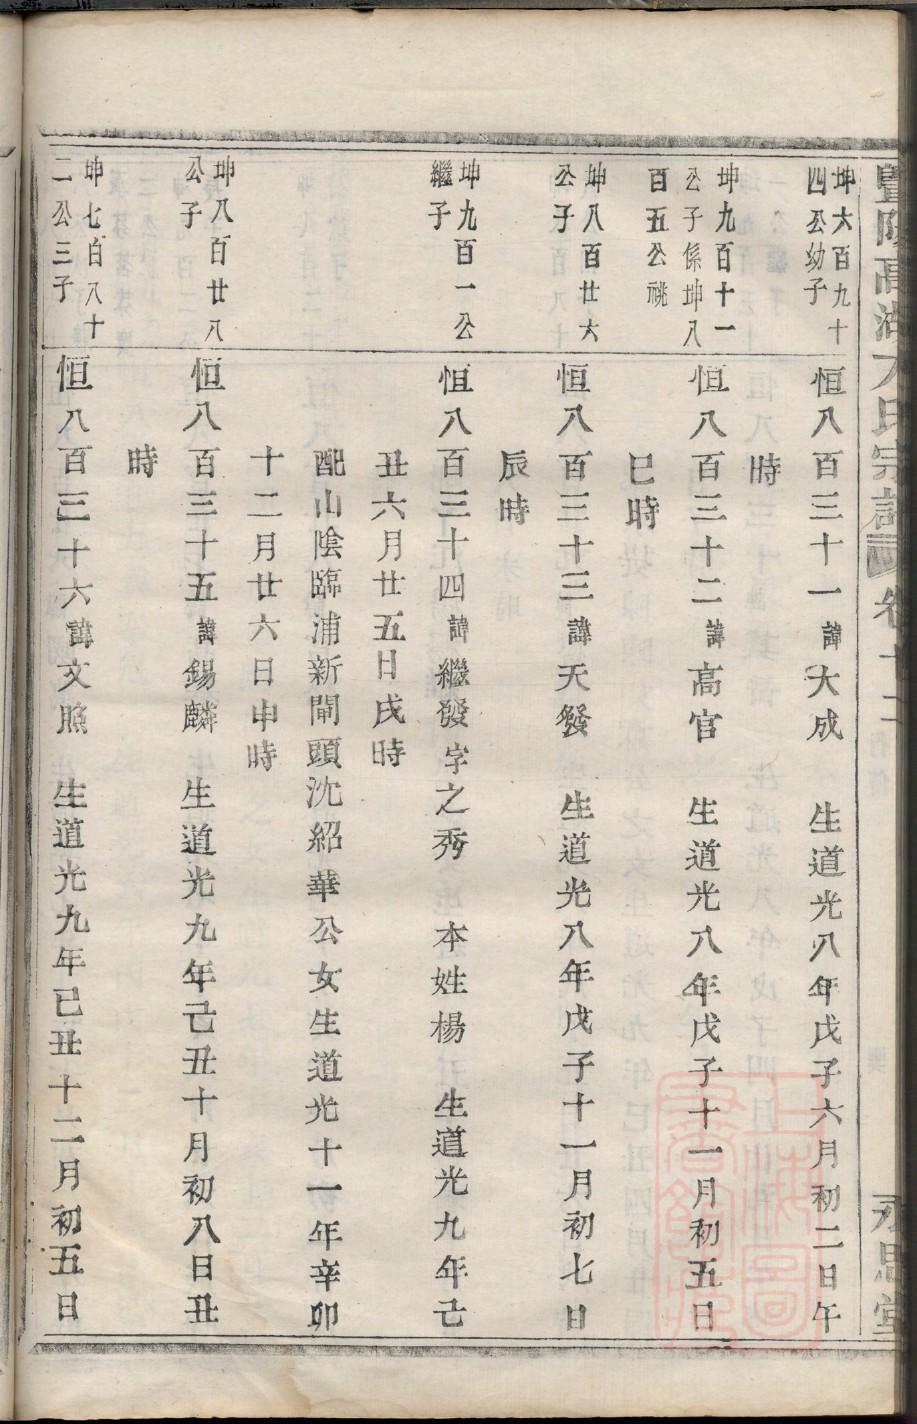 暨陽高湖方氏宗譜 卷十二 永思堂
坤六百九十
四公幼子
恒八百三十一諱大成 生道光八年戊子六月初二日午
時
坤九百十一
公子係坤八
百五公祧
恒八百三十二諱高官 生道光八年戊子十一月初五日
巳時
坤八百廿六
公子
恒八百三十三諱天發 生道光八年戊子十一月初七日
辰時
坤九百一公
繼子
恒八百三十四諱繼發字之秀 本姓楊 生道光九年己
丑六月廿五日戌時
配山陰臨浦新閘頭沈紹華公女生道光十一年辛卯
十二月廿六日申時
坤八百廿八
公子
恒八百三十五諱錫麟 生道光九年己丑十月初八日丑
時
坤七百八十
二公三子
恒八百三十六諱文照 生道光九年己丑十二月初五日